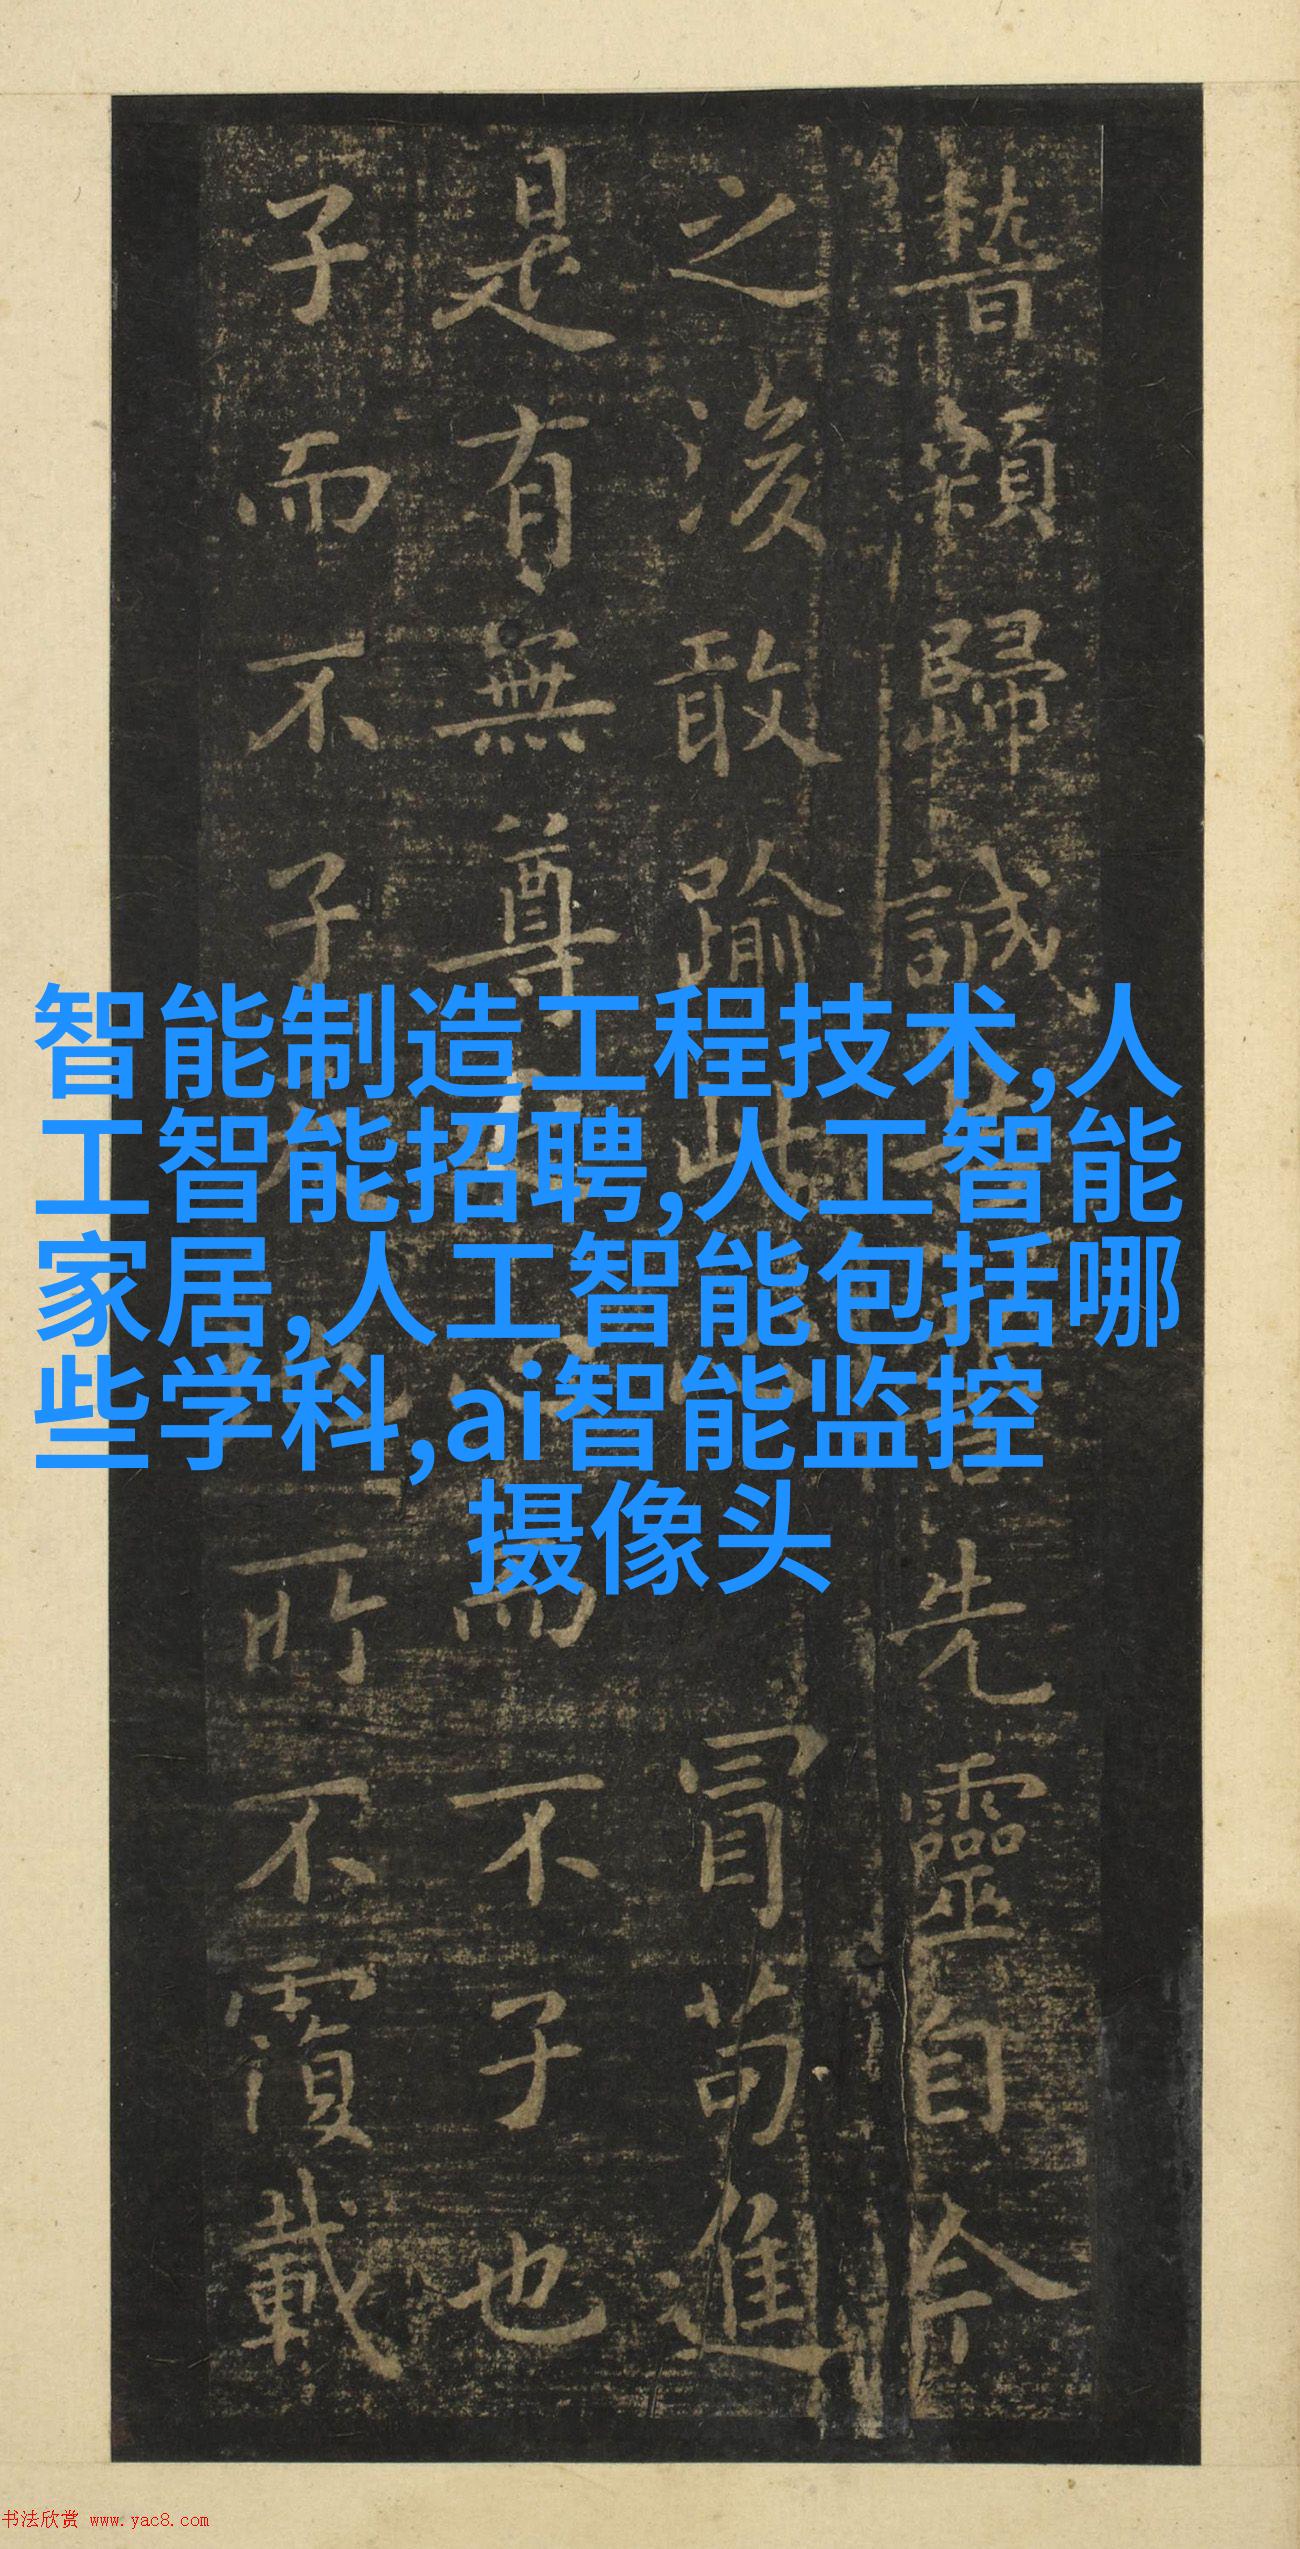 稽顙歸誠
先靈自今
之後敢踰此
冒苟進
是有無尊
而不子也
子而不子
所不覆載
智能制造工程技术,人
工智能招聘,人工智能
家居,人工智能包括哪
些学科,ai智能监控
摄像头
书法欣赏 www.yac8.com